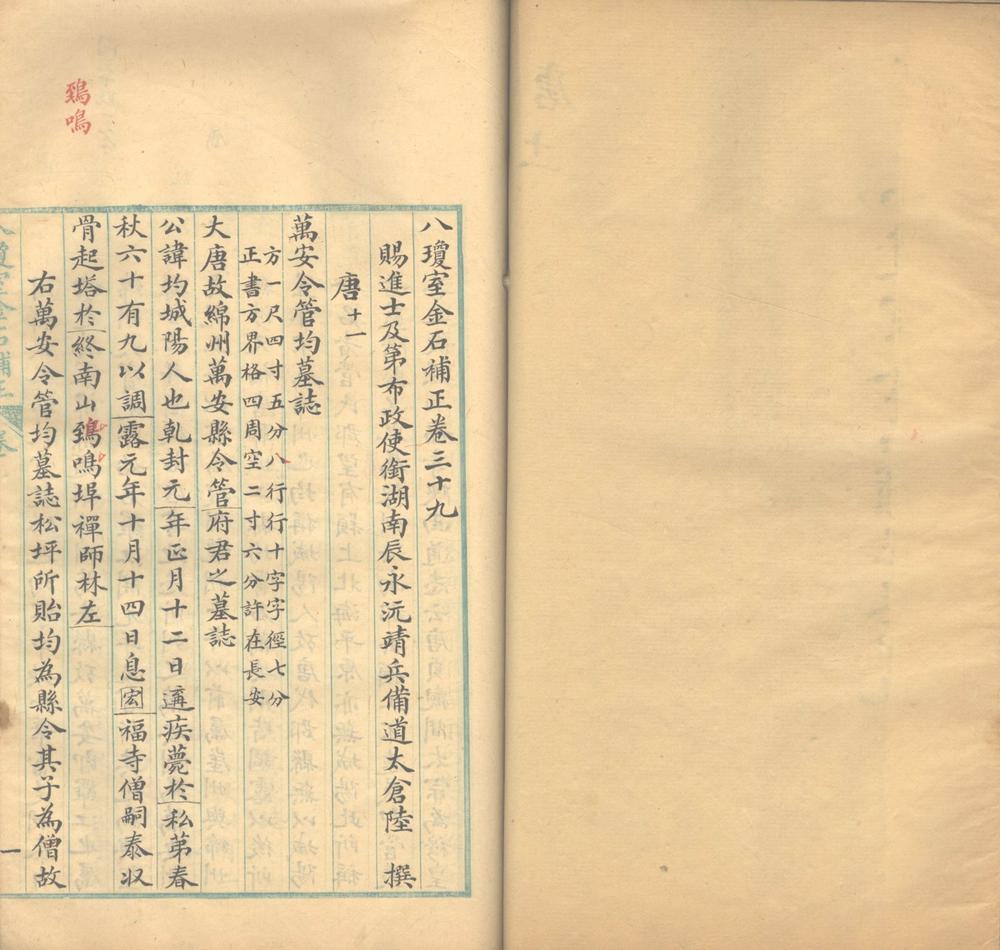 八瓊室金石補正卷三十九
賜進士及第布政使銜湖南辰永沅靖兵備道太倉陸 撰
唐十一
萬安令管均墓誌
方一尺四寸五分八行行十字字徑七分
正書方界格四周空二寸六分許在長安
大唐故綿州萬安縣令管府君之墓誌
公諱均城陽人也乹封元年正月十二日遘疾薨於私第春
秋六十有九以調露元年十月十四日息宏福寺僧嗣泰収
骨起塔於終南山鵄鳴埠禪師林左
鵄鳴
右萬安令管均墓誌松坪所貽均為縣令其子為僧故
八瓊室金石補正
一